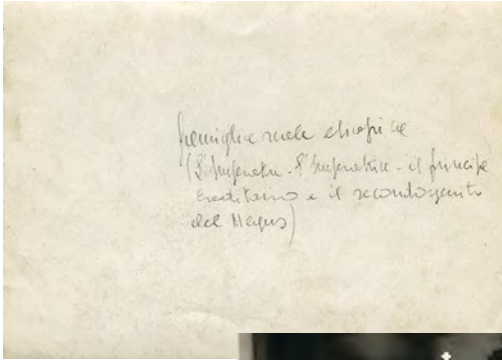 famiglia reale etiopica
(L'Imperatore - l'Imperatrice - il principe
Ereditario e il secondogenito
del Negus)